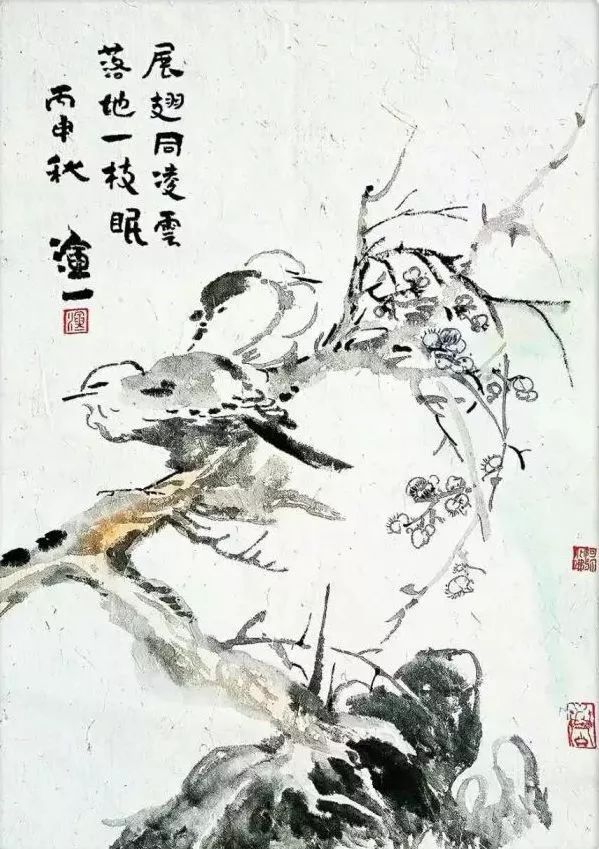 展翅同凌雲
落地一枝眠
丙申秋